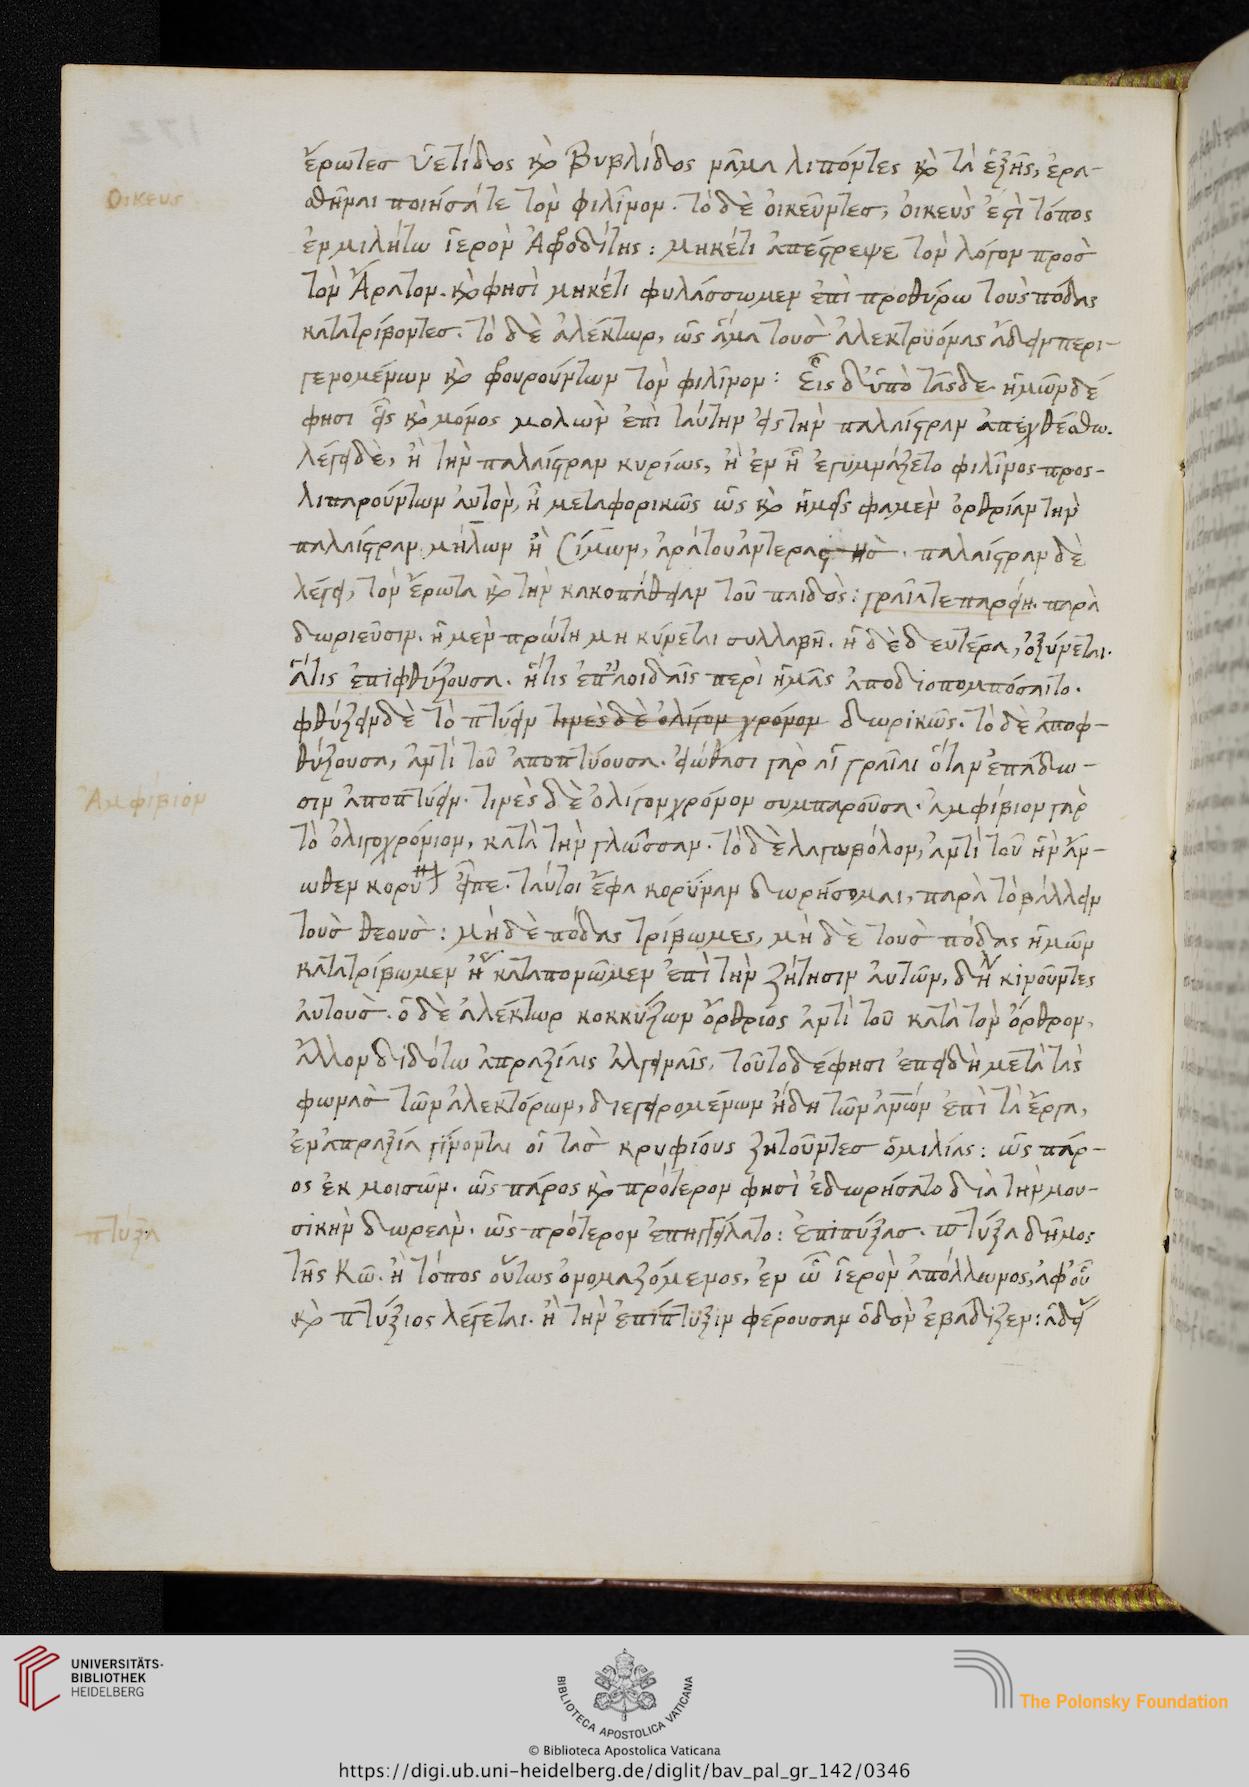 ἔρωτες Ὑετίδος κὶ Βυβλίδος νᾶμα λιπόντες κὶ τὰ ἑξῆς, ἐρα-
Οἰκεὺς
σθῆναι ποιήσατε τὸν φιλῖνον. τὸ δὲ οἰκεῦντες, οἰκεὺς ἐστὶ τόπος
ἐν μιλήτω ἱερὸν Ἀφροδίτης: μηκέτι ἀπέστρεψε τὸν λόγον πρὸς
τὸν Ἄρατον. κὶ φησὶ μηκέτι φυλάσσωμεν ἐπὶ προθύρω τοὺς πόδας
κατατρίβοντες. τὸ δὲ ἀλέκτωρ, ὡς ἅμα τοὺς ἀλεκτρυόνας ἄδειν περι-
γενομένων κὶ φρουρούντων τὸν φιλῖνον: Εἷς δ' ὑπὸ τᾶσδε ἡμῶν δέ
φησι εἷς κὶ μόνος μολὼν ἐπὶ ταύτην εἰς τὴν παλαίστραν ἀπεχθέσθω.
λέγει δὲ, ἢ τὴν παλαίστραν κυρίως, ἢ ἐν ᾗ ἐγυμνάζετο φιλῖνος προς-
λιπαρούντων αὐτὸν, ἢ μεταφορικῶς ὡς κὶ ἡμεῖς φαμὲν ὀρθρίαν τὴν
παλαίστραν μήλων ἢ Σίμων, ἀράτου ἀντεραστὸς. παλαίστραν δὲ
λέγει, τὸν ἔρωτα κὶ τὴν κακοπάθειαν τοῦ παιδὸς: γραῖα τε παρείη. παρὰ
δωριεῦσιν. ἡ μὲν πρώτη μὴ κύνεται συλλαβὴ. ἡ δὲ δευτέρα, ὀξύνεται.
ἅτις ἐπιφθύζουσα. ἥτις ἐπ' ἀοιδαῖς περὶ ἡμᾶς ἀποδιοπομπόσαιτο.
φθύζειν δὲ τὸ πτύειν τινὲς δὲ ὀλίγον χρόνον δωρικῶς. τὸ δὲ ἀποφ-
θύζουσα, ἀντὶ τοῦ ἀποπτύουσα. εἰώθασι γὰρ αἱ γραῖαι ὅταν ἐπάδω-
Ἀμφίβιον
σιν ἀποπτύειν. τινὲς δὲ ὀλίγον χρόνον συμπαροῦσα. ἀμφίβιον γὰρ
τὸ ὀλιγοχρόνιον, κατὰ τὴν γλῶσσαν. τὸ δὲ λαγωβόλον, ἀντὶ τοῦ ἣν ἄν-
ωθεν κορύνην εἶπε. ταύτοι ἔφα κορύναν δωρήσομαι, παρὰ τὸ βάλλειν
τοὺς θεοὺς: μὴ δὲ πόδας τρίβωμες, μὴ δὲ τοὺς πόδας ἡμῶν
κατατρίβωμεν ἢ καταπονῶμεν ἐπὶ τὴν ζήτησιν αὐτῶν, δὴ κινοῦντες
αὐτοὺς. ὁ δὲ ἀλέκτωρ κοκκύζων ὄρθριος ἀντὶ τοῦ κατὰ τὸν ὄρθρον,
ἄλλον διδότω ἀπραξίαις ἀλγειναῖς. τοῦτο δέ φησι ἐπειδὴ μετὰ τὰς
φωνὰς τῶν ἀλεκτόρων, διεγειρομένων ἤδη τῶν ἀνῶν ἐπὶ τὰ ἔργα,
ἐν ἀπραξία γίνονται οἱ τὰς κρυφίους ζητοῦντες ὁμιλίας: ὡς πάρ-
ος ἐκ μοισῶν. ὡς πάρος κὶ πρότερον φησὶ ἐδωρήσατο διὰ τὴν μου-
πτύξα
σικὴν δωρεὰν. ὡς πρότερον ἐπηγγείλατο: ἐπὶ πύξας. πτύξα δῆμος
τῆς Κῶ. ἢ τόπος οὕτως ὀνομαζόμενος, ἐν ᾧ ἱερὸν ἀπόλλωνος, ἀφ' οὗ
κὶ πτύξιος λέγεται. ἢ τὴν ἐπὶ πτύξιν φέρουσαν ὁδὸν ἐβάδιζεν: ἁδεῖ
UNIVERSITÄTS-
BIBLIOTHEK
HEIDELBERG
BIBLIOTECA APOSTOLICA VATICANA
The Polonsky Foundation
© Biblioteca Apostolica Vaticana
https://digi.ub.uni-heidelberg.de/diglit/bav_pal_gr_142/0346